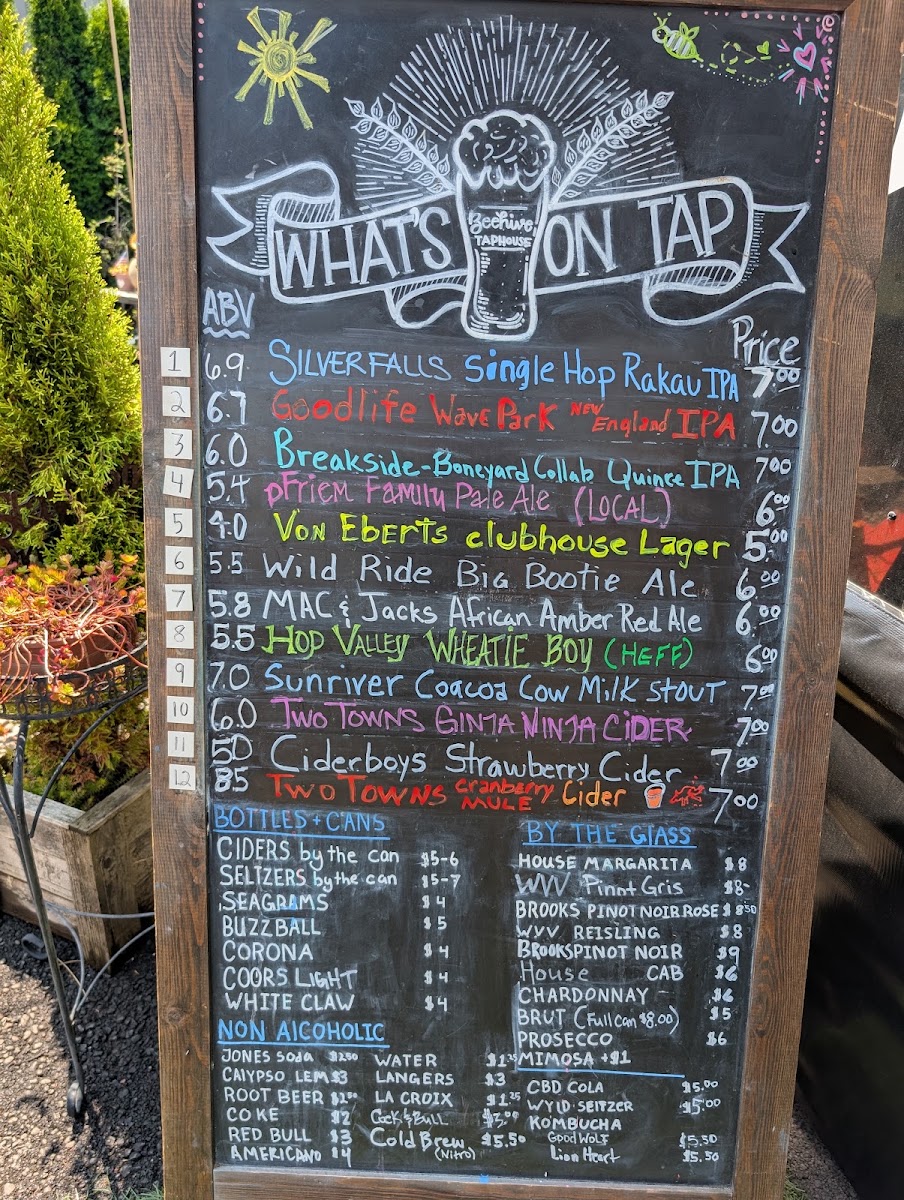 Beehive
TAPHOUSE
WHAT'S ON TAP
ABV Price
1 6.9 SILVER FALLS Single Hop Rakau IPA 7.00
2 6.7 Goodlife Wave Park NEW England IPA 7.00
3 6.0 Breakside-Boneyard Collab Quince IPA 7.00
4 5.4 pFriem Family Pale Ale (LOCAL) 6.00
5 4.0 Von Eberts clubhouse Lager 5.00
6 5.5 Wild Ride Big Bootie Ale 6.00
7 5.8 MAC & Jacks African Amber Red Ale 6.00
8 5.5 HOP VALLEY WHEATIE BOY (HEFF) 6.00
9 7.0 Sunriver Coacoa Cow Milk STOUT 7.00
10 6.0 TWO TOWNS GINJA NINJA CIDER 7.00
11 5.0 Ciderboys Strawberry Cider 7.00
12 8.5 TWO TOWNS cranberry MULE Cider 7.00
BOTTLES + CANS
CIDERS by the can $5-6
SELTZERS by the can $5-7
SEAGRAMS $4
BUZZBALL $5
CORONA $4
COORS LIGHT $4
WHITE CLAW $4
BY THE GLASS
HOUSE MARGARITA $8
WVV Pinnt Gris $8-
BROOKS PINOT NOIR ROSE $8.50
WVV REISLING $8
BROOKS PINOT NOIR $9
House CAB $6
CHARDONNAY $6
BRUT (Full can $8.00) $5
PROSECCO $6
MIMOSA +$1
NON ALCOHOLIC
JONES Soda $2.50
CALYPSO LEM $3
ROOT BEER $2.00
COKE $2
RED BULL $3
AMERICANO $4
WATER $1.25
LANGERS $3
LA CROIX $1.25
Cock & Bull $3.00
Cold Brew (NITRO) $5.50
CBD COLA $5.00
WYLD SELTZER $5.00
KOMBUCHA
GOOD WOLF $5.50
Lion Heart $5.50